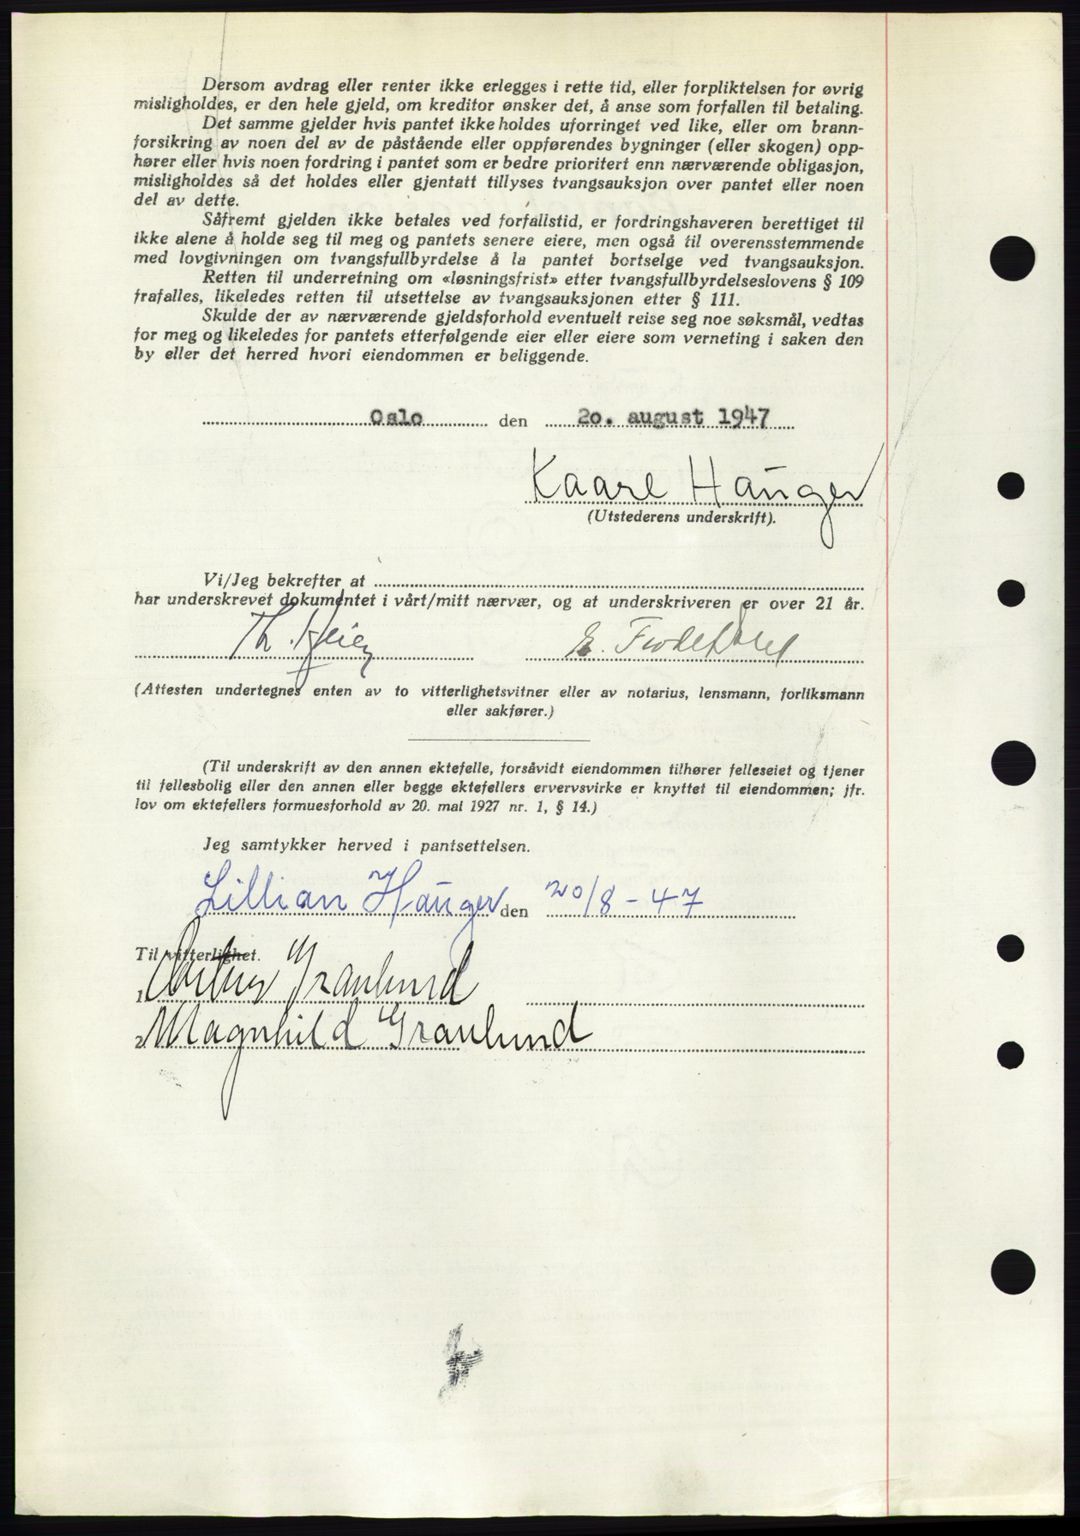 Dersom avdrag eller renter ikke erlegges i rette tid, eller forpliktelsen for øvrig
misligholdes, er den hele gjeld, om kreditor ønsker det, å anse som forfallen til betaling.
Det samme gjelder hvis pantet ikke holdes uforringet ved like, eller om brann-
forsikring av noen del av de påstående eller oppførendes bygninger (eller skogen) opp-
hører eller hvis noen fordring i pantet som er bedre prioritert enn nærværende obligasjon,
misligholdes så det holdes eller gjentatt tillyses tvangsauksjon over pantet eller noen
del av dette.
Såfremt gjelden ikke betales ved forfallstid, er fordringshaveren berettiget til
ikke alene å holde seg til meg og pantets senere eiere, men også til overensstemmende
med lovgivningen om tvangsfullbyrdelse å la pantet bortselge ved tvangsauksjon.
Retten til underretning om «løsningsfrist» etter tvangsfullbyrdelseslovens § 109
frafalles, likeledes retten til utsettelse av tvangsauksjonen etter § 111.
Skulde der av nærværende gjeldsforhold eventuelt reise seg noe søksmål, vedtas
for meg og likeledes for pantets etterfølgende eier eller eiere som verneting i saken den
by eller det herred hvori eiendommen er beliggende.
Oslo den 20. august 1947
Kaare Hauger
(Utstederens underskrift).
Vi/Jeg bekrefter at
har underskrevet dokumentet i vårt/mitt nærvær, og at underskriveren er over 21 år.
Th. Heier E.
(Attesten undertegnes enten av to vitterlighetsvitner eller av notarius, lensmann, forliksmann
eller sakfører.)
(Til underskrift av den annen ektefelle, forsåvidt eiendommen tilhører felleseiet og tjener
til fellesbolig eller den annen eller begge ektefellers ervervsvirke er knyttet til eiendommen; jfr.
lov om ektefellers formuesforhold av 20. mai 1927 nr. 1, § 14.)
Jeg samtykker herved i pantsettelsen.
Lillian Hauger den 20/8 - 47
Til vitterlighet.
1 Granlund
2 Magnhild Granlund